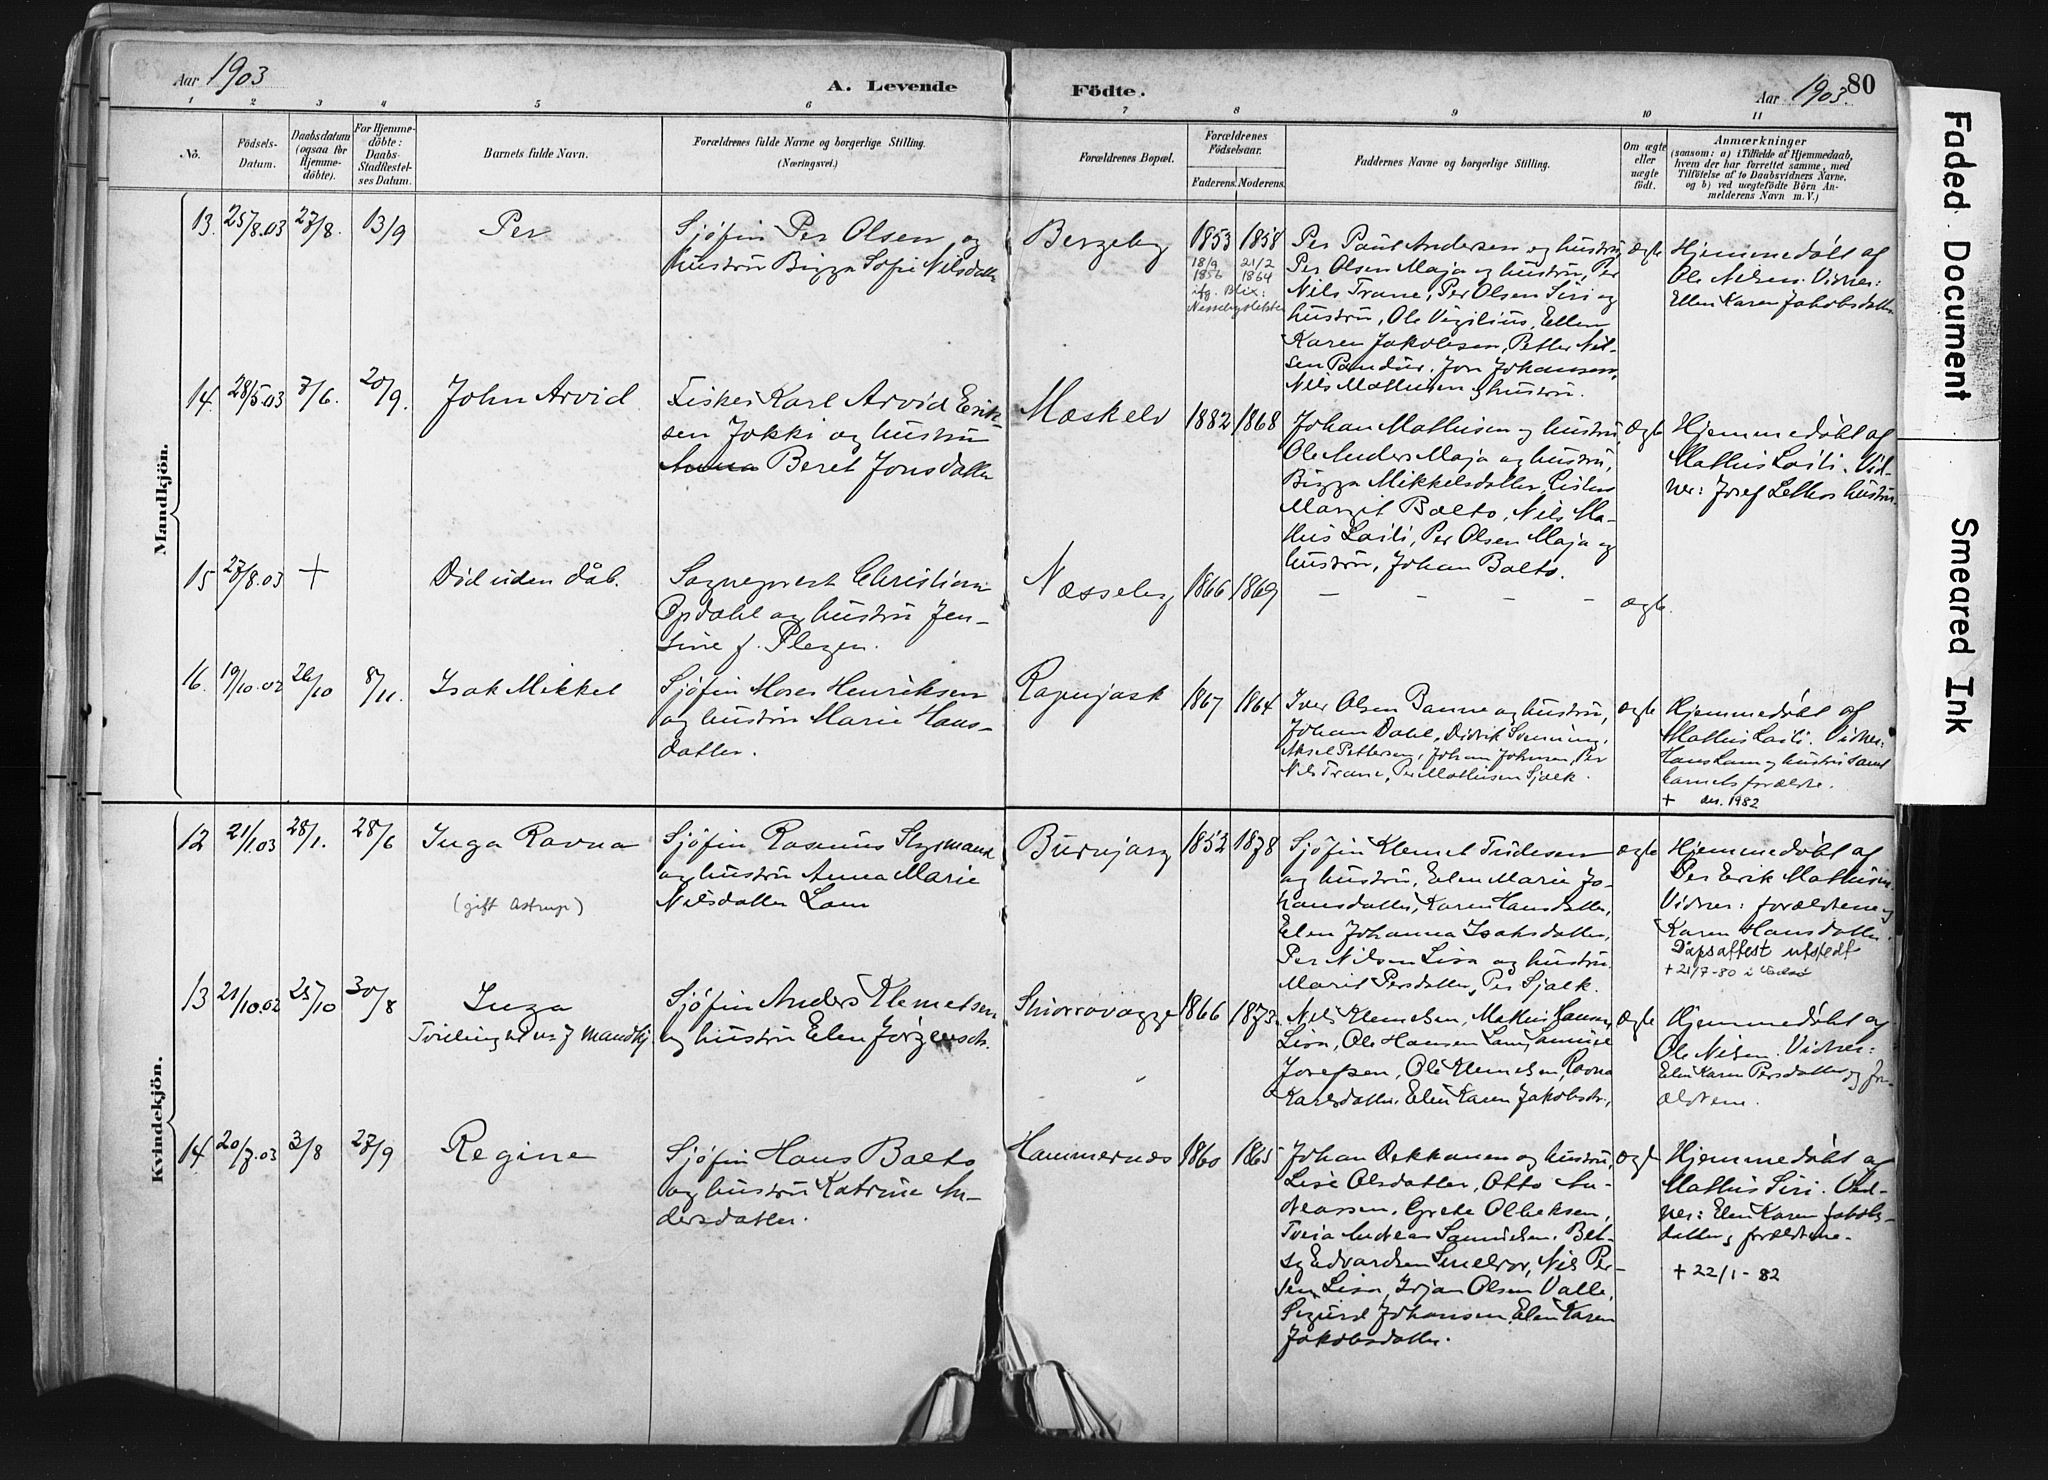 Aar 1903
A. Levende
Födte.
Aar 1903.
80
1 2 3 4 5 6 7 8 9 10 11
No.
Födsels-
Datum.
Daabsdatum
(ogsaa for
Hjemme-
döbte).
For Hjemme-
döbte:
Daabs-
Stadfæstel-
ses Datum.
Barnets fulde Navn.
Forældrenes fulde Navne og borgerlige Stilling.
(Næringsvei.)
Forældrenes Bopæl.
Forældrenes
Födselsaar.
Faderens. Moderens.
Faddernes Navne og borgerlige Stilling.
Om ægte
eller
uægte
födt.
Anmærkninger
(saasom: a) i Tilfælde af Hjemmedaab,
hvem der har forrettet samme, med
Tilföielse af to Daabsvidners Navne,
og b) ved uægtefödte Börn An-
melderens Navn m. V.)
Mandkjön.
13. 25/8.03 27/8. 13/9
Per
Sjöfin Per Olsen og
hustru Bigga Sofie Nilsdatter
Bergeby
1853 1858
18/9 21/2
1856 1864
ifg. Blix:
Nesseby slekter
Per Paul Andersen og hustru,
Per Olsen Maja og hustru, Per
Nils Trane, Per Olsen Siri og
hustru, Ole Vigilius, Ellen
Karen Jakobsen, Petter Nil-
sen Pandur, Jon Johansen,
Nils Mathisen og hustru.
ægte
Hjemmedøbt af
Ole Nilsen. Vidner:
Ellen Karen Jakobsdatter
14. 28/5.03 7/6. 20/9.
John Arvid
Fisker Karl Arvid Erik-
sen Jokki og hustru
Anna Beret Jonsdatter
Mæskelv
1882 1868
Johan Mathisen og hustru,
Ole Anders Maja og hustru,
Bigga Mikkelsdatter,
Margit Balto, Nils Ma-
this Laiti, Per Olsen Maja og
hustru, Johan Balto.
ægte
Hjemmedøbt af
Mathis Laiti. Vid-
ner: Josef hustru
15 27/8.03 +
Död uden dåb.
Sogneprest Christian
Opdahl og hustru Jen-
sine f. Plezen.
Næsseby
1866 1869
– – – –
ægte.
16. 19/10.02 26/10 8/11.
Isak Mikkel
Sjöfin Moses Henriksen
og hustru Marie Hans-
datter.
1867 1864
Iver Olsen Banne og hustru,
Johan Dahl, Didrik
Aksel Pettersen, Johan Johnsen, Per
Nils Trane, Per Mathisen Sjalk.
ægte
Hjemmedøbt af
Mathis Laiti. Vidner:
Hans Lam og hustru samt
barnets forældre.
+ des. 1982
Kvindekjön.
12 21/1.03 28/1. 28/6
Inga Ravna
(gift Astrup)
Sjöfin Rasmus Styrmand
og hustru Anna Marie
Nilsdatter Lam
Burnjarg
1853 1878
Sjöfin Klemet Tudesen
og hustru, Elen Marie Jo-
hansdatter, Karen Hansdatter,
Elen Johanna Isaksdatter,
Per Nilsen Lisa og hustru
Marit Persdatter, Per Sjalk.
ægte
Hjemmedøbt af
Per Erik Mathisen
Vidner: forældrene og
Karen Hansdatter.
Dåpsattest utstedt
+ 21/7-80 i Vadsø
13 21/10.02 25/10 30/8
Inga
Tvilling til nr 7 mandkj.
Sjöfin Anders Klemetsen
og hustru Elen Jörgensdt.
1866 1873.
Nils Klemetsen, Mathis Hansen
Lisa, Ole Hansen Lam, Samuel
Josefsen, Ole Klemetsen, Ravna
Karlsdatter, Elen Karen Jakobsdtr,
ægte
Hjemmedøbt af
Ole Nilsen. Vidner:
Elen Karen Persdatter og for-
ældrene.
14 20/7.03 3/8 27/9
Regine
Sjöfin Hans Balto
og hustru Katrine An-
dersdatter.
Hammernæs
1860 1865
Johan Pekkanen og hustru,
Lise Olsdatter, Otto An-
dreassen, Grete Olbeksen,
Andreas Samuelsen, Bet-
sy Edvardsen Smelror, Nils Per-
sen Lisa, Irjan Olsen Valle,
Sigurd Johansen, Elen Karen
Jakobsdatter.
ægte
Hjemmedøbt af
Mathis Siri. Vid-
ner: Elen Karen Jakobs-
datter og forældrene.
+ 22/1-82
Faded Document
Smeared Ink